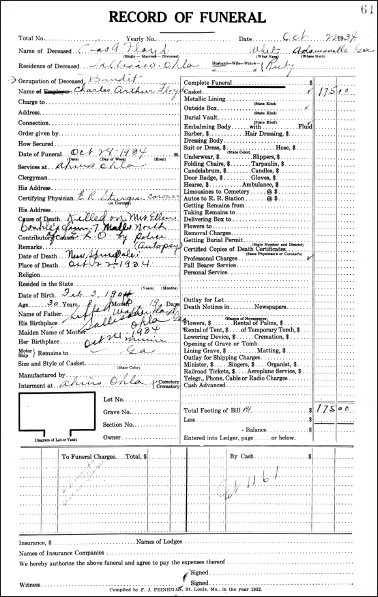 61
RECORD OF FUNERAL
Total No. Yearly No. Date Oct 22 1934
Name of Deceased Chas A Floyd White Adamsville Ga
(Single - Married - Divorced) (What Race) (Where Born)
Residence of Deceased Sallisaw, Okla Husband—Wife—Widow of Ruby
Occupation of Deceased Bandit
Name of Employer Charles Arthur Floyd
Charge to
Address
Connection
Order given by
How Secured
Date of Funeral Oct 28 1934
(Date) (Day of Week) (Hour)
Services at Akins Okla
Clergyman
His Address
Certifying Physician E.R. Sturgis coroner
(or Coroner)
His Address
Cause of Death Killed on Mrs Ellen
Conkle farm 7 Miles North
Contributory of E.L.O. by Police
Remarks (Autopsy)
Date of Death
Place of Death Oct 22 - 1934
Religion
Resided in the State
Date of Birth Feb. 3, 1904
Age 30 Years, Months, 19 Days
Name of Father Walter Floyd
His Birthplace Ga
Maiden Name of Mother
Her Birthplace
Motor Ship Remains to
Size and Style of Casket
(State Color)
Manufactured by
Interment at Akins Okla Cemetery Crematory
Lot No.
Grave No.
Section No.
Owner
Diagram of Lot or Vault
Complete Funeral $
Casket 175 00
Metallic Lining
(State Kind)
Outside Box
(State Kind)
Burial Vault
(State Kind)
Embalming Body with Fluid
Barber, $ Hair Dressing, $
Dressing Body
Suit or Dress, $ Hose, $
(State Kind)
Underwear, $ Slippers, $
Folding Chairs, $ Tarpaulin, $
Candelabrum, $ Candles, $
Door Badge, $ Gloves, $
Hearse, $ Ambulance, $
Limousines to Cemetery @ $
Autos to R. R. Station @ $
Getting Remains from
Taking Remains to
Delivering Box to
Flowers to
Removal Charges
Getting Burial Permit
(State Number and District)
Certified Copies of Death Certificates
(State Physician's or Coroner's)
Professional Charges
Pall Bearer Service
Personal Service
Outlay for Lot
Death Notices in Newspapers
(Names of Newspapers)
Flowers, $ Rental of Palms, $
Rental of Tent, $ of Temporary Tomb, $
Lowering Device, $ Cremation, $
Opening of Grave or Tomb
Lining Grave, $ Matting, $
Outlay for Shipping Charges
Minister, $ Singers, $ Organist, $
Railroad Tickets, $ Aeroplane Service, $
Telegr., Phone, Cable or Radio Charges
Cash Advanced
Total Footing of Bill $ 175 00
Less $
Balance $
Entered into Ledger, page or below.
To Funeral Charges Total, $
By Cash $
Insurance, $ Names of Lodges
Names of Insurance Companies
We hereby authorize the above funeral and agree to pay the expenses thereof
Signed
Witness Signed
Compiled by F. J. FEINEMAN, St. Louis, Mo., in the year 1932.